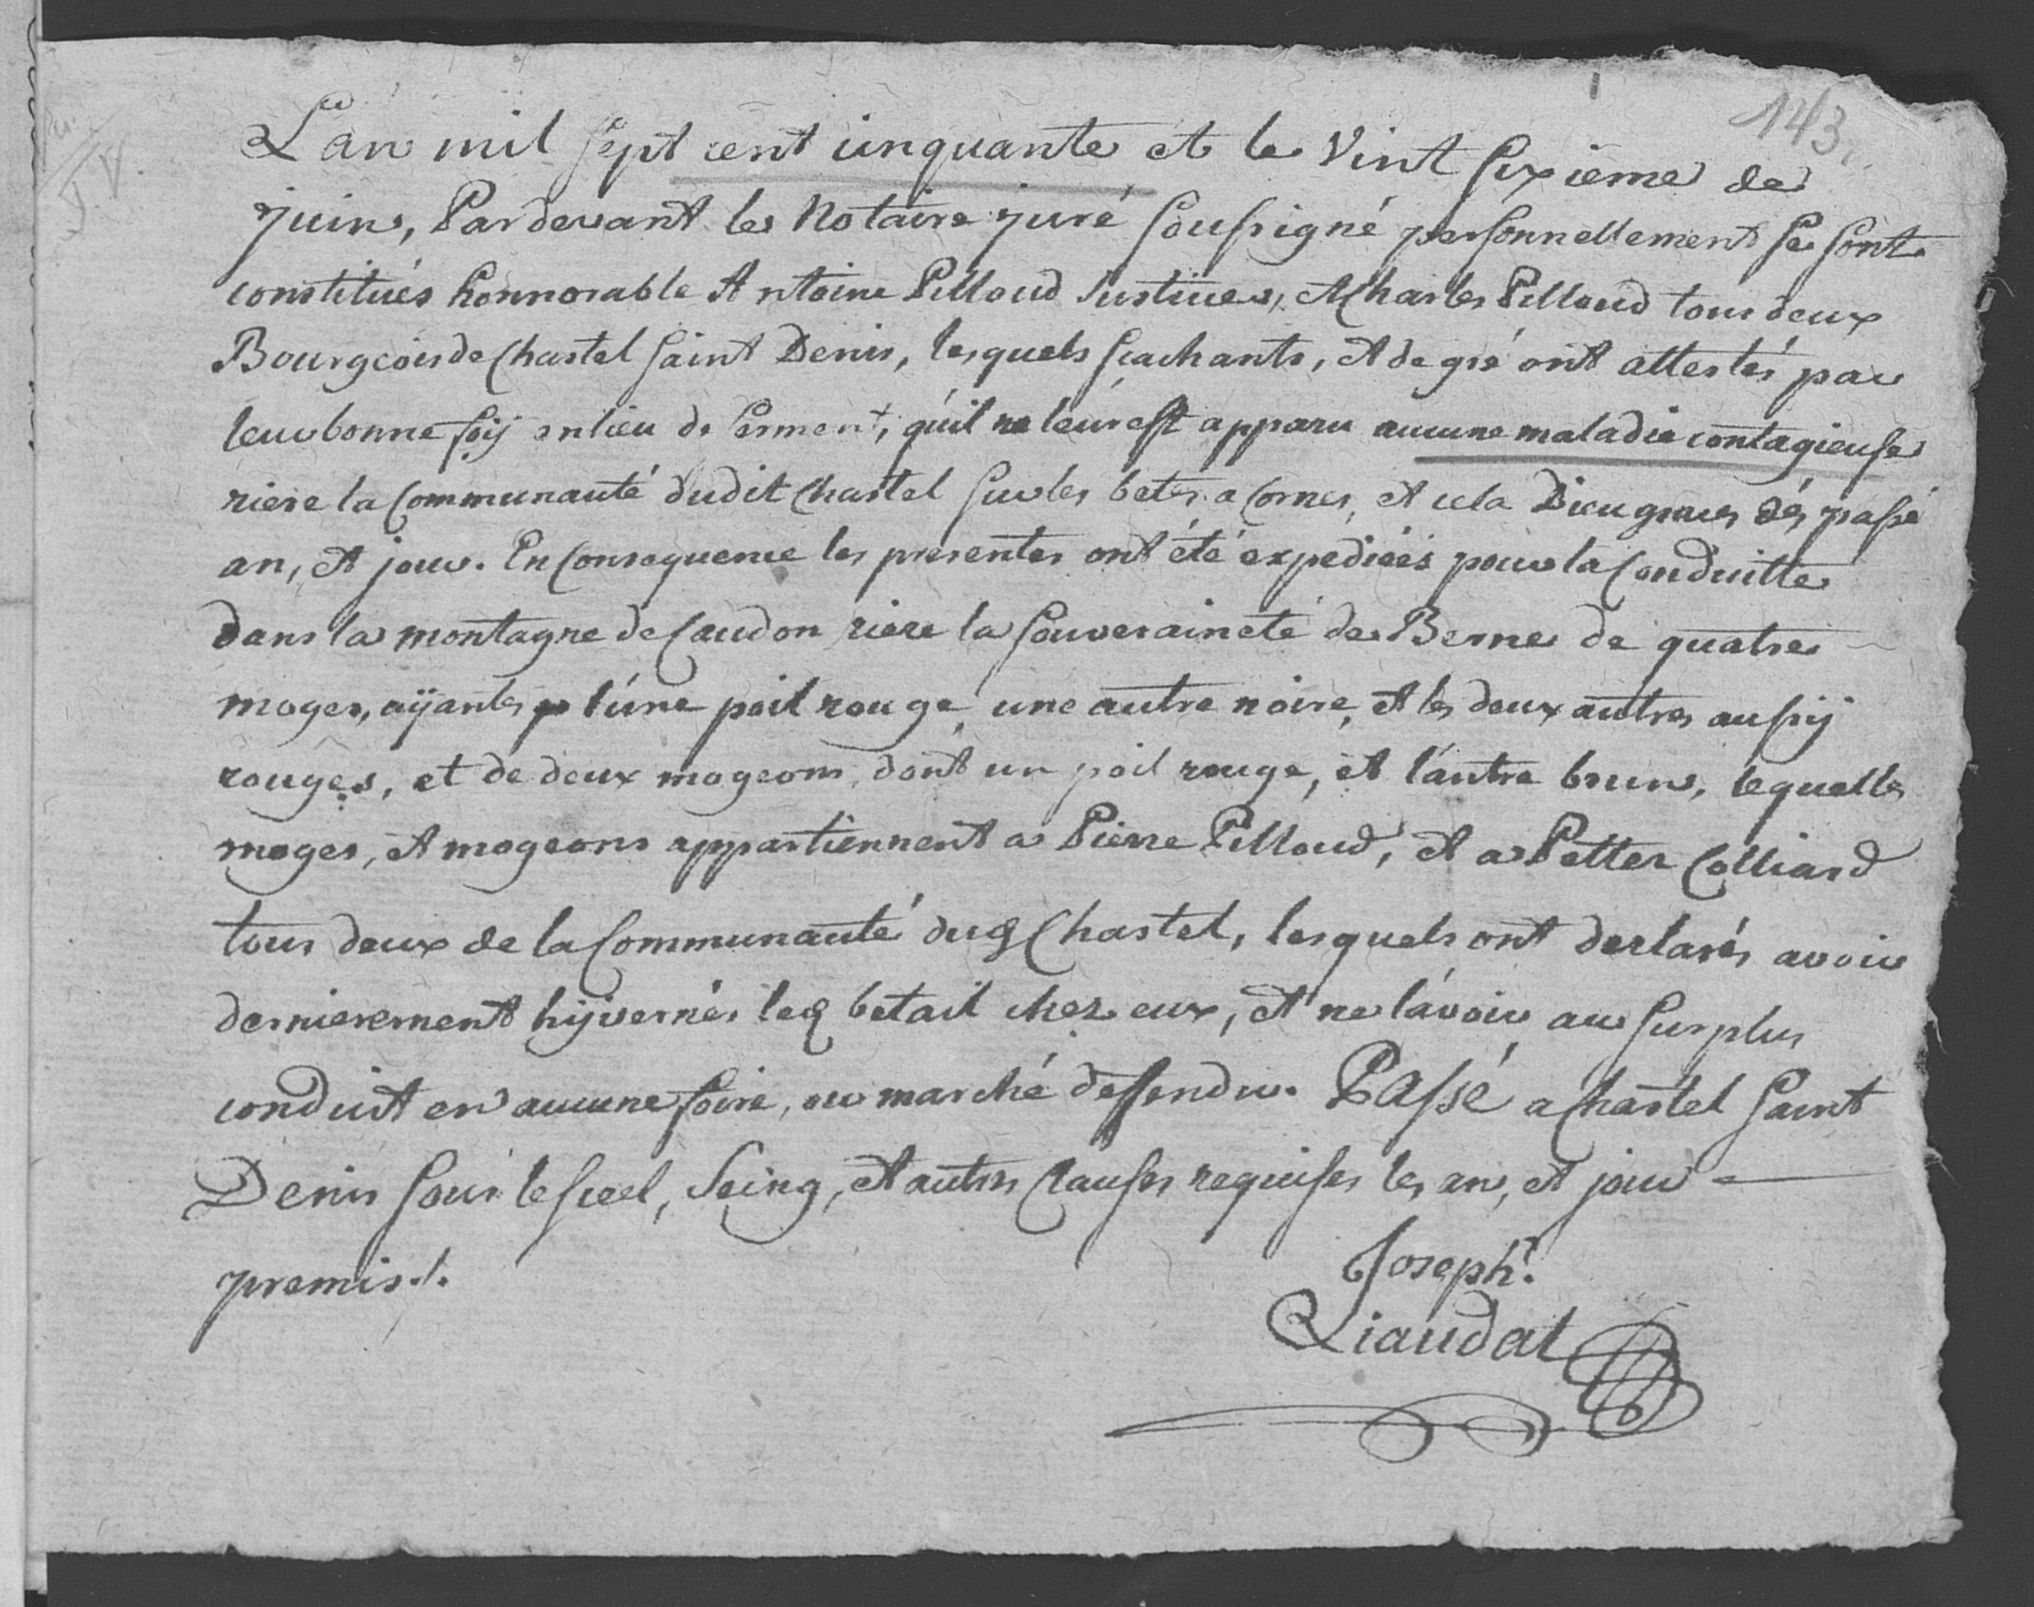 143
L'an mil sept cent cinquante et le Vint sixieme de
juin, Pardevant le Notaire juré soussigné personnellement se sont
constitués honnorable Antoine Pilloud Justicier, et Charles Pilloud tous deux
Bourgeois de Chastel saint Denis, lesquels sçachants, et de gré ont attestés par
leur bonne foÿ en lieu de serment, qu'il ne leur est apparu aucune maladie contagieuse
riere la Communauté dudit Chastel sur les betes a Cornes, et cela Dieu graces dés passé
an, et jour. En Consequence les presentes ont été expediées pour la Conduitte
dans la montagne de Caudon riere la souveraineté de Berne de quatre
moges, aÿantes l'une poil rouge, une autre noire, et les deux autres aussÿ
rouges, et de deux mogeons dont un poil rouge, et l'autre brun, lequelles
moges, et mogeons appartiennent a Pierre Pilloud, et a Petter Colliard
tous deux de la Communauté dud Chastel, lesquels ont declarés avoir
dernierement hÿvernés led betail chez eux, et ne l'avoir au surplus
conduit en aucune foire, ou marché deffendu. Passé a Chastel saint
Denis sous le scel, seing, et autres Clauses requises les an, et jour
premis./.
Joseph
Liaudat